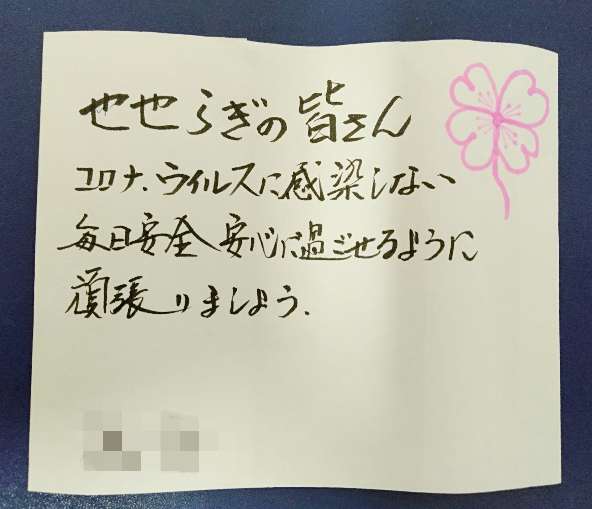 せせらぎの皆さん
コロナ.ウイルスに感染しない
毎日安全安心に過ごせるように
頑張りましょう.